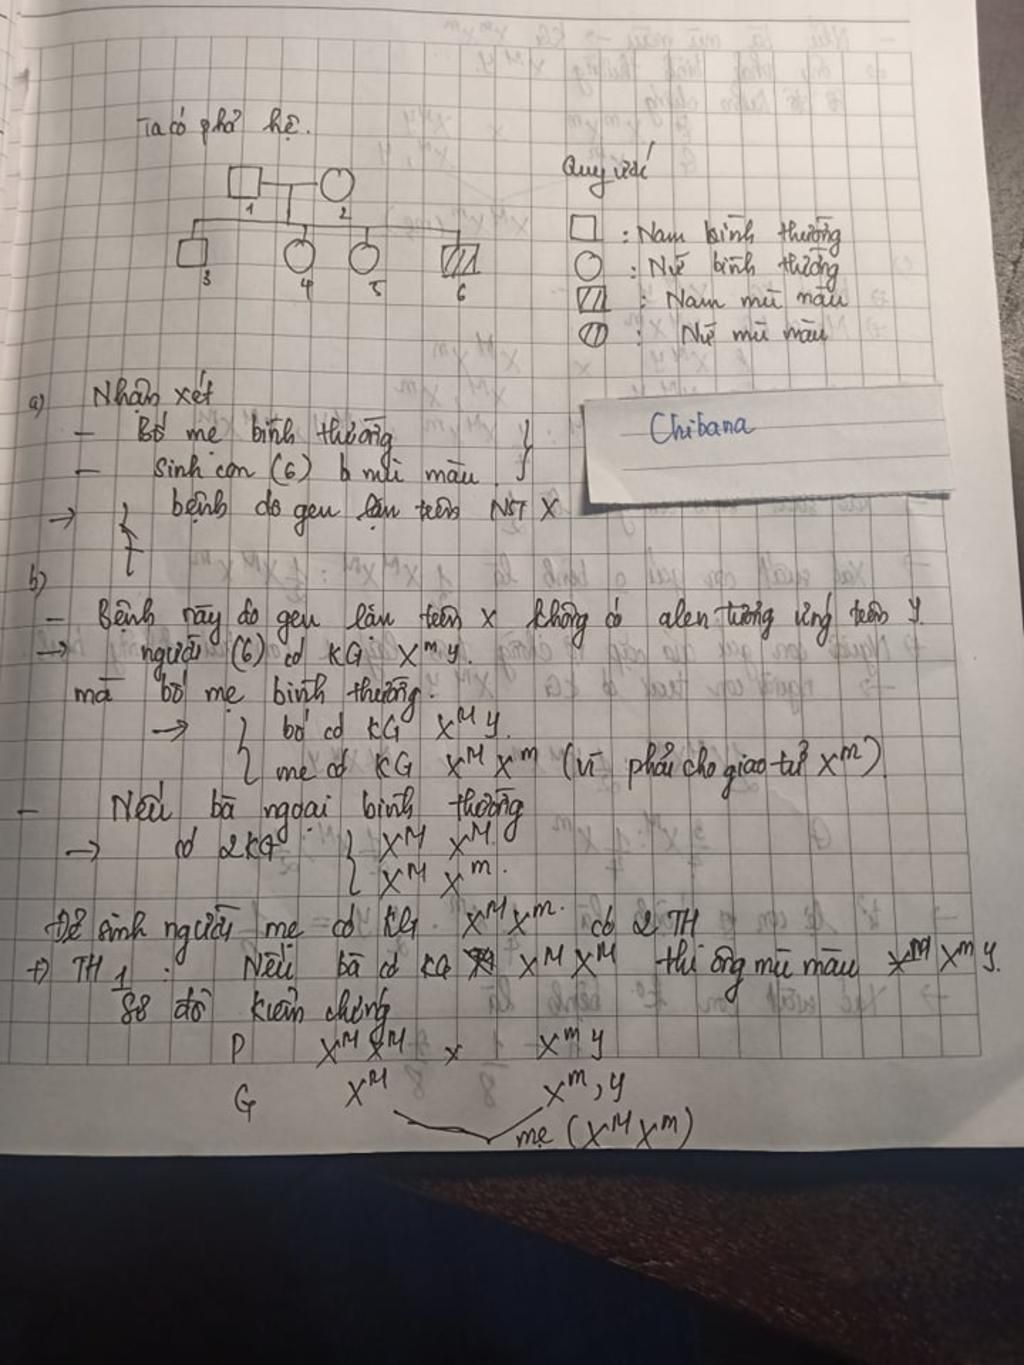 Ta có phả hệ.
Quy ước
1
2
3
4
5
6
: Nam bình thường
: Nữ bình thường
: Nam mù màu
: Nữ mù màu
a) Nhận xét
- Bố mẹ bình thường
- Sinh con (6) b mù màu.
Chibana
→ bệnh do gen lặn trên NST X
b)
- Bệnh này do gen lặn trên X không có alen tương ứng trên Y.
→ người (6) có KG X^m Y.
mà bố mẹ bình thường.
→ bố có KG X^M Y.
mẹ có KG X^M X^m (vì phải cho giao tử X^m)
- Nếu bà ngoại bình thường
→ có 2KG X^M X^M.
X^M X^m.
Để sinh người mẹ có KG. X^M X^m. có 2 TH
+) TH 1 : Nếu bà có KG X^M X^M thì ông mù màu X^m Y.
Sơ đồ kiểm chứng
P X^M X^M x X^m Y
G X^M X^m, Y
mẹ (X^M X^m)